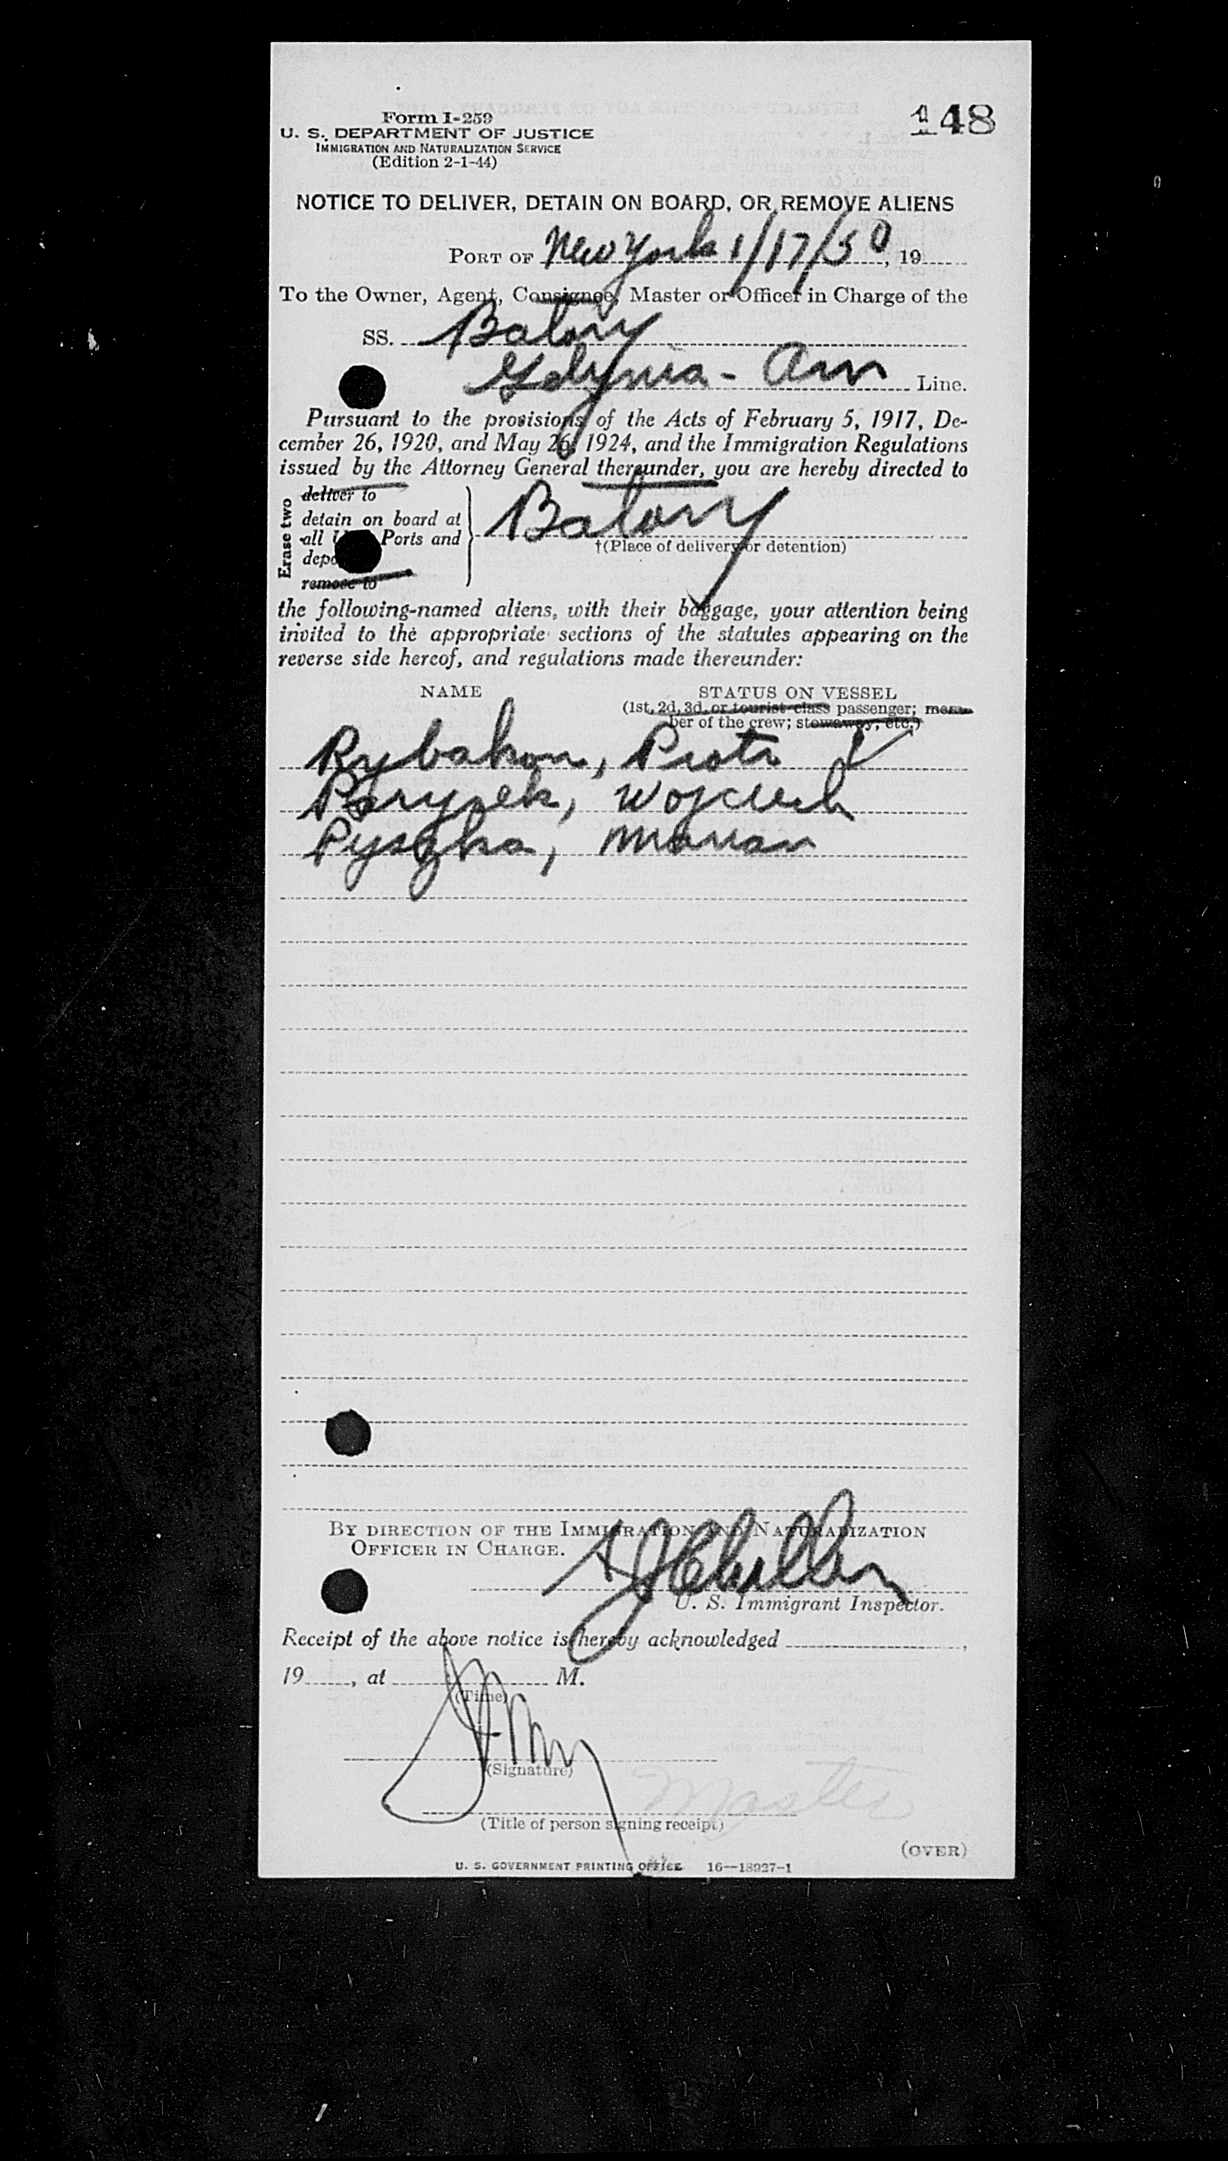 148
Form I-259
U. S. DEPARTMENT OF JUSTICE
IMMIGRATION AND NATURALIZATION SERVICE
(Edition 2-1-44)
NOTICE TO DELIVER, DETAIN ON BOARD, OR REMOVE ALIENS
PORT OF New York 1/17/50, 19
To the Owner, Agent, Consignee, Master or Officer in Charge of the
SS. Batory
Gdynia - Am Line.
Pursuant to the provisions of the Acts of February 5, 1917, De-
cember 26, 1920, and May 26, 1924, and the Immigration Regulations
issued by the Attorney General thereunder, you are hereby directed to
Erase two
deliver to
detain on board at
all Ports and
Batory
†(Place of delivery or detention)
remove to
the following-named aliens, with their baggage, your attention being
invited to the appropriate sections of the statutes appearing on the
reverse side hereof, and regulations made thereunder:
NAME STATUS ON VESSEL
(1st, 2d, 3d, or tourist class passenger; mem-
ber of the crew; stowaway, etc.)
Rybakow, Piotr
Parysek, Wojciech
Pyszka, Marian
BY DIRECTION OF THE IMMIGRATION AND NATURALIZATION
OFFICER IN CHARGE.
U. S. Immigrant Inspector.
Receipt of the above notice is hereby acknowledged ,
19 , at M.
(Time)
(Signature)
Master
(Title of person signing receipt)
(OVER)
U. S. GOVERNMENT PRINTING OFFICE 16—18927-1